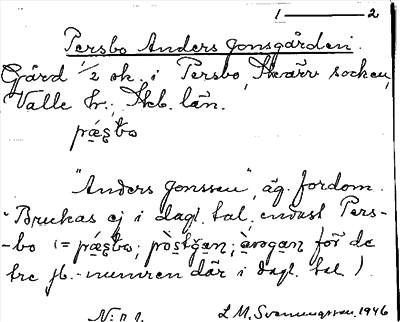 1 — 2
Persbo Anders Jonsgården.
Gård 1/2 sk. i Persbo, Skärv socken,
Valle hr., Skb. län.
"Anders Jonssen", äg. fordom.
"Brukas ej i dagl. tal, endast Pers-
-bo (=
för de
tre jb.-numren där i dagl. tal).
L. M. Svenungsson. 1946